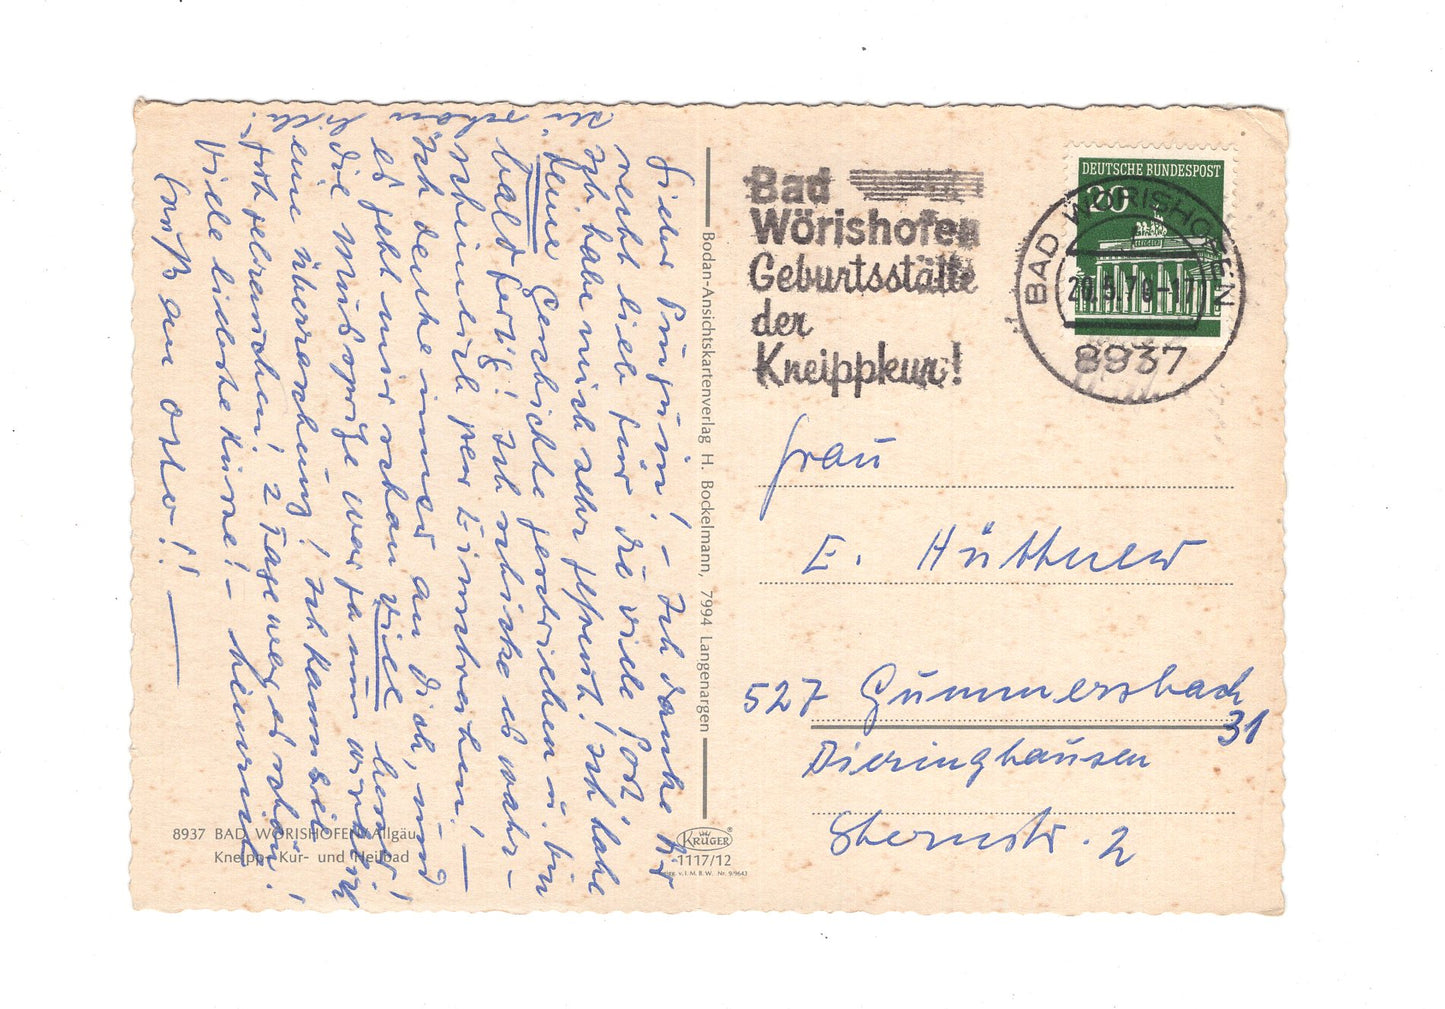 Bad
Wörishofen
Geburtsstätte
der
Kneippkur!
DEUTSCHE BUNDESPOST
20
BAD WÖRISHOFEN
20.5.70-17
8937
Frau
E. Hüttner
527 Gummersbach
31
Dieringhausen
Sternstr. 2
Bodan-Ansichtskartenverlag H. Bockelmann, 7994 Langenargen
KRÜGER
1117/12
8937 BAD WÖRISHOFEN/Allgäu
Kneipp-Kur- und Heilbad
Liebe ! – Ich danke Dir
recht lieb für die viele Post!
Ich habe mich sehr gefreut! Ich habe
Deine Geschichte geschrieben u. bin
bald fertig! Ich schicke es wahr-
scheinlich per Einschreiben! –
Ich denke immer an Dich, und
es geht mir schon viel besser!
Die war ja nun wirklich
eine Überraschung! Ich kann sie
gebrauchen! 2 Tage
Viele liebste Küsse! –
Gruß an Otto!! –